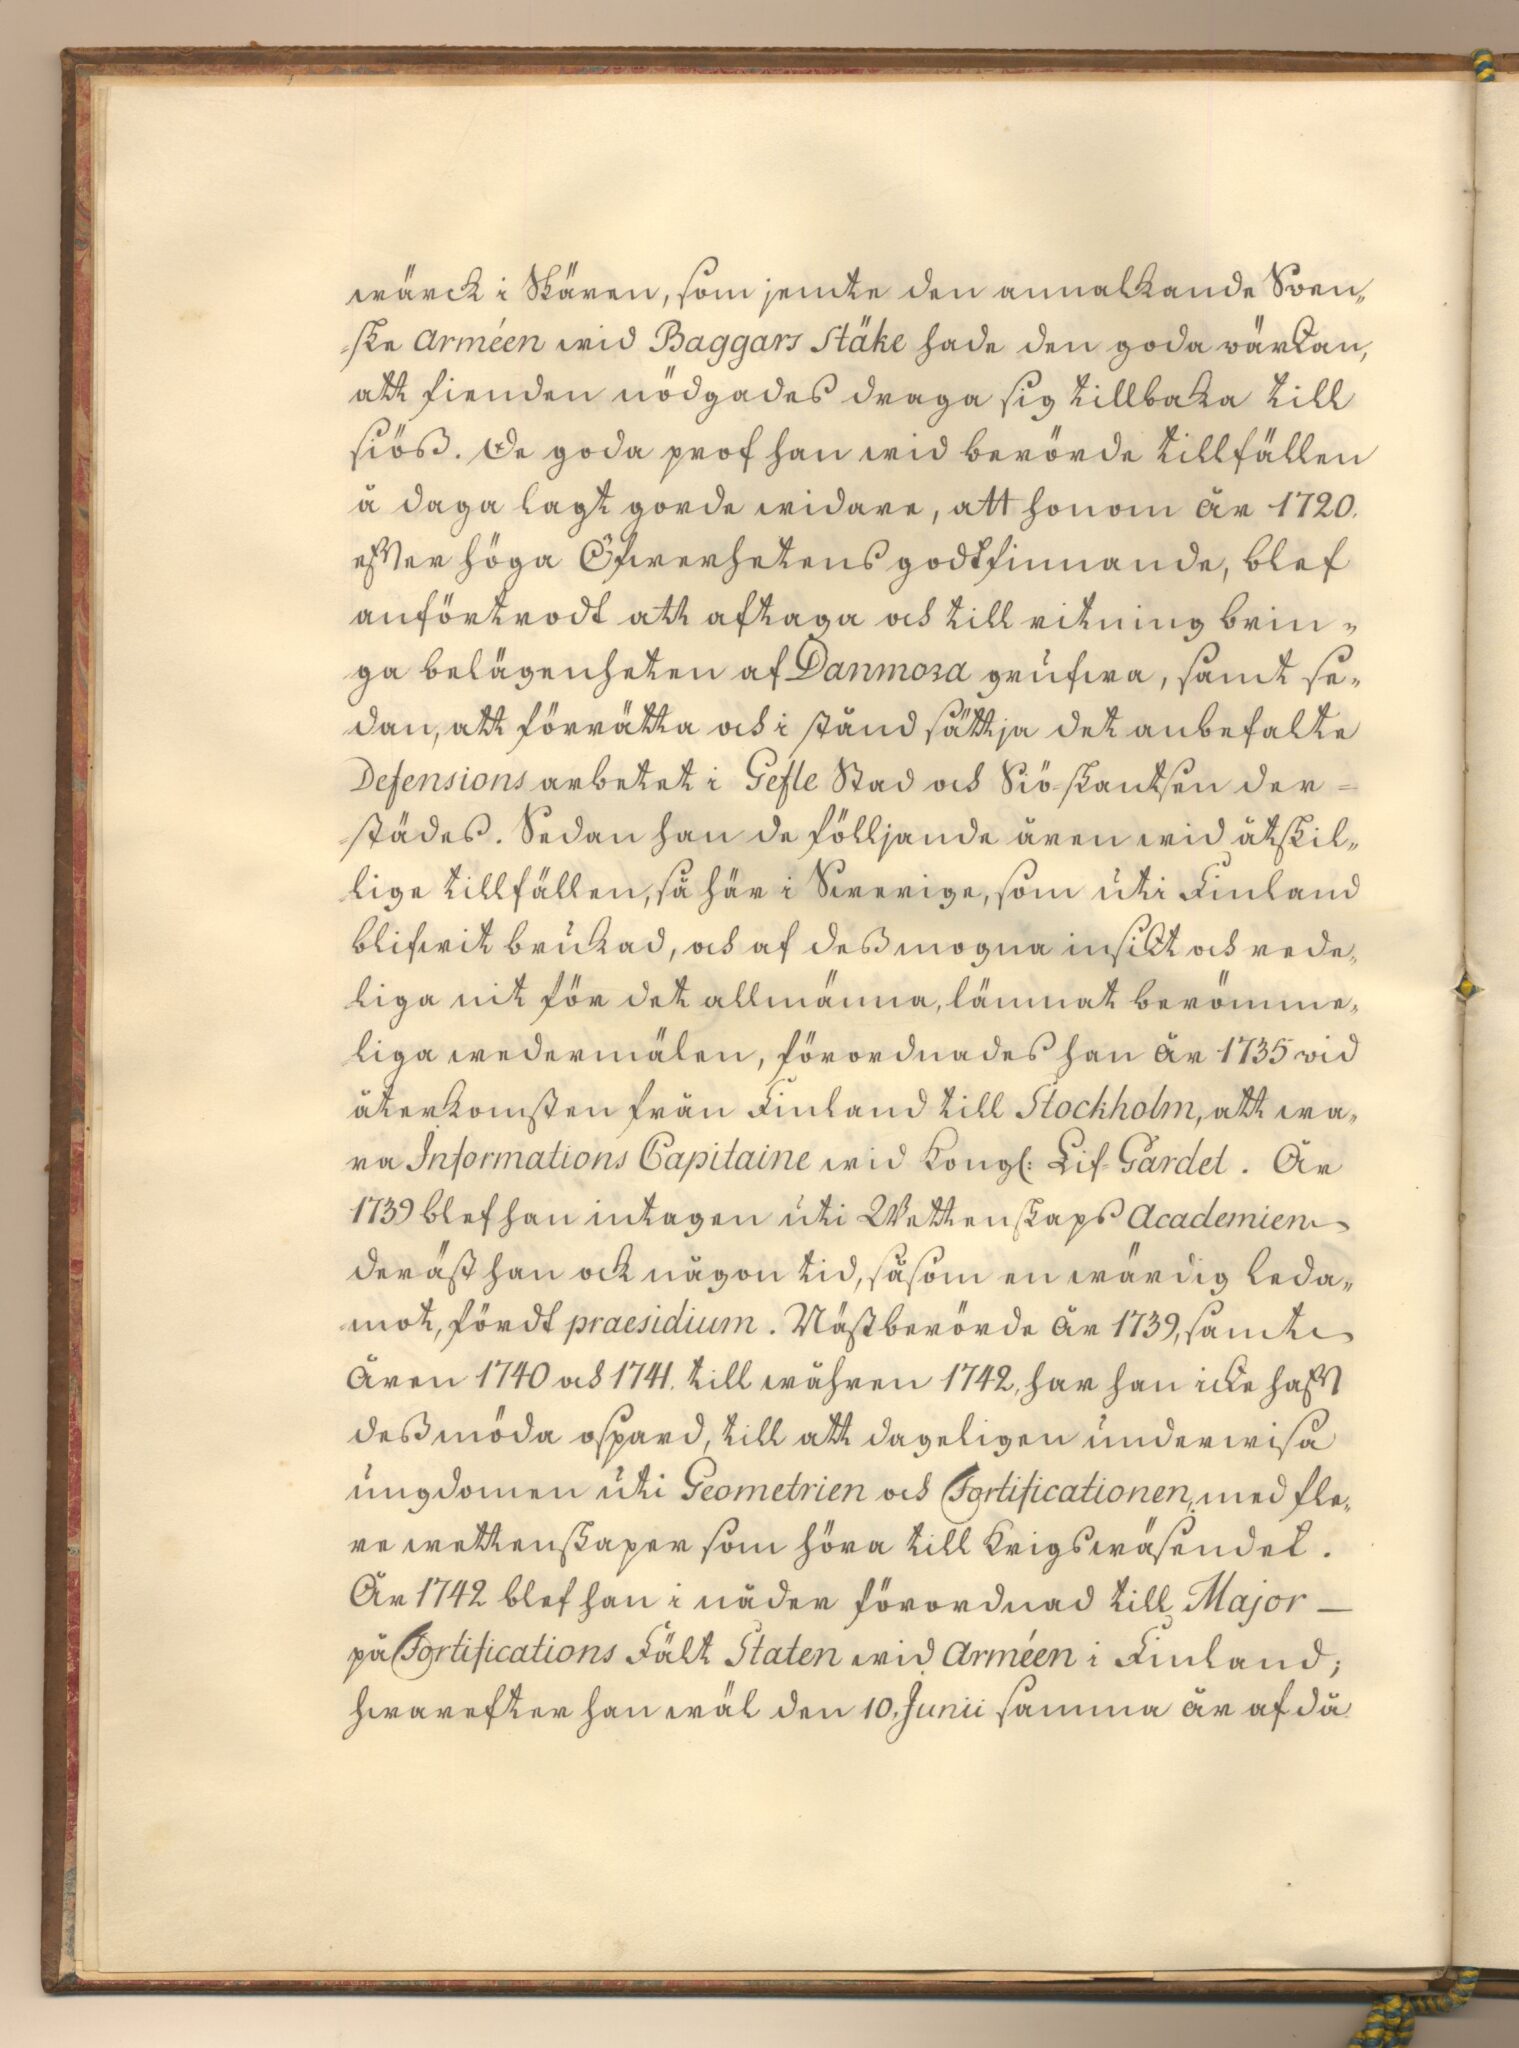 wärck i Skären, som jemte den annalkande Swen„
„ske Arméen wid Baggars Stäke hade den goda wärkan,
att fienden nödgades draga sig tillbaka till
siöß. De goda prof han wid berörde tillfällen
å daga lagt gorde widare, att honom år 1720.
efter höga Öfwerhetens godtfinnande, blef
anförtrodt att aftaga och till ritning brin„
ga belägenheten af Danmora grufwa, samt se„
dan, att förrätta och i stånd sättja det anbefalte
Defensions arbetet i Gefle Stad och Siö-skantsen der=
städes. Sedan han de följjande åren wid åtskil„
lige tillfällen, så här i Swerige, som uti Finland
blifwit brukad, och af deß mogna insikt och rede„
liga nit för det allmänna, lämnat berömme„
liga wedermälen, förordnades han år 1735 wid
återkomsten från Finland till Stockholm, att wa„
ra Informations Capitaine wid Kongl: Lif-Gardet. År
1739 blef han intagen uti Wettenskaps Academien
deräst han ock någon tid, såsom en wärdig leda„
mot, fördt praesidium. Näst berörde år 1739, samt
åren 1740 och 1741. till wåhren 1742, har han icke haft
deß möda ospard, till att dageligen underwisa
ungdomen uti Geometrien och Fortificationen, med fle„
re wettenskaper som höra till Krigswäsendet.
År 1742 blef han i nåder förordnad till Major —
på Fortifications Fält Staten wid Arméen i Finland;
hwarefter han wäl den 10. Junii samma år af då